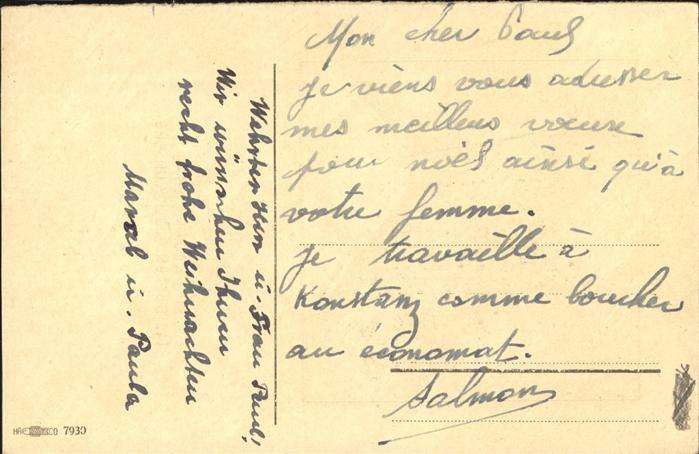 Mon cher Paul
je viens vous adresser
mes meilleurs voeux
pour noël ainsi qu'à
votre femme.
je travaille à
Konstanz comme boucher
au économat.
Salmon
Werter Herr u. Frau Paul,
Wir wünschen Ihnen
recht frohe Weihnachten
u. Paula
7930